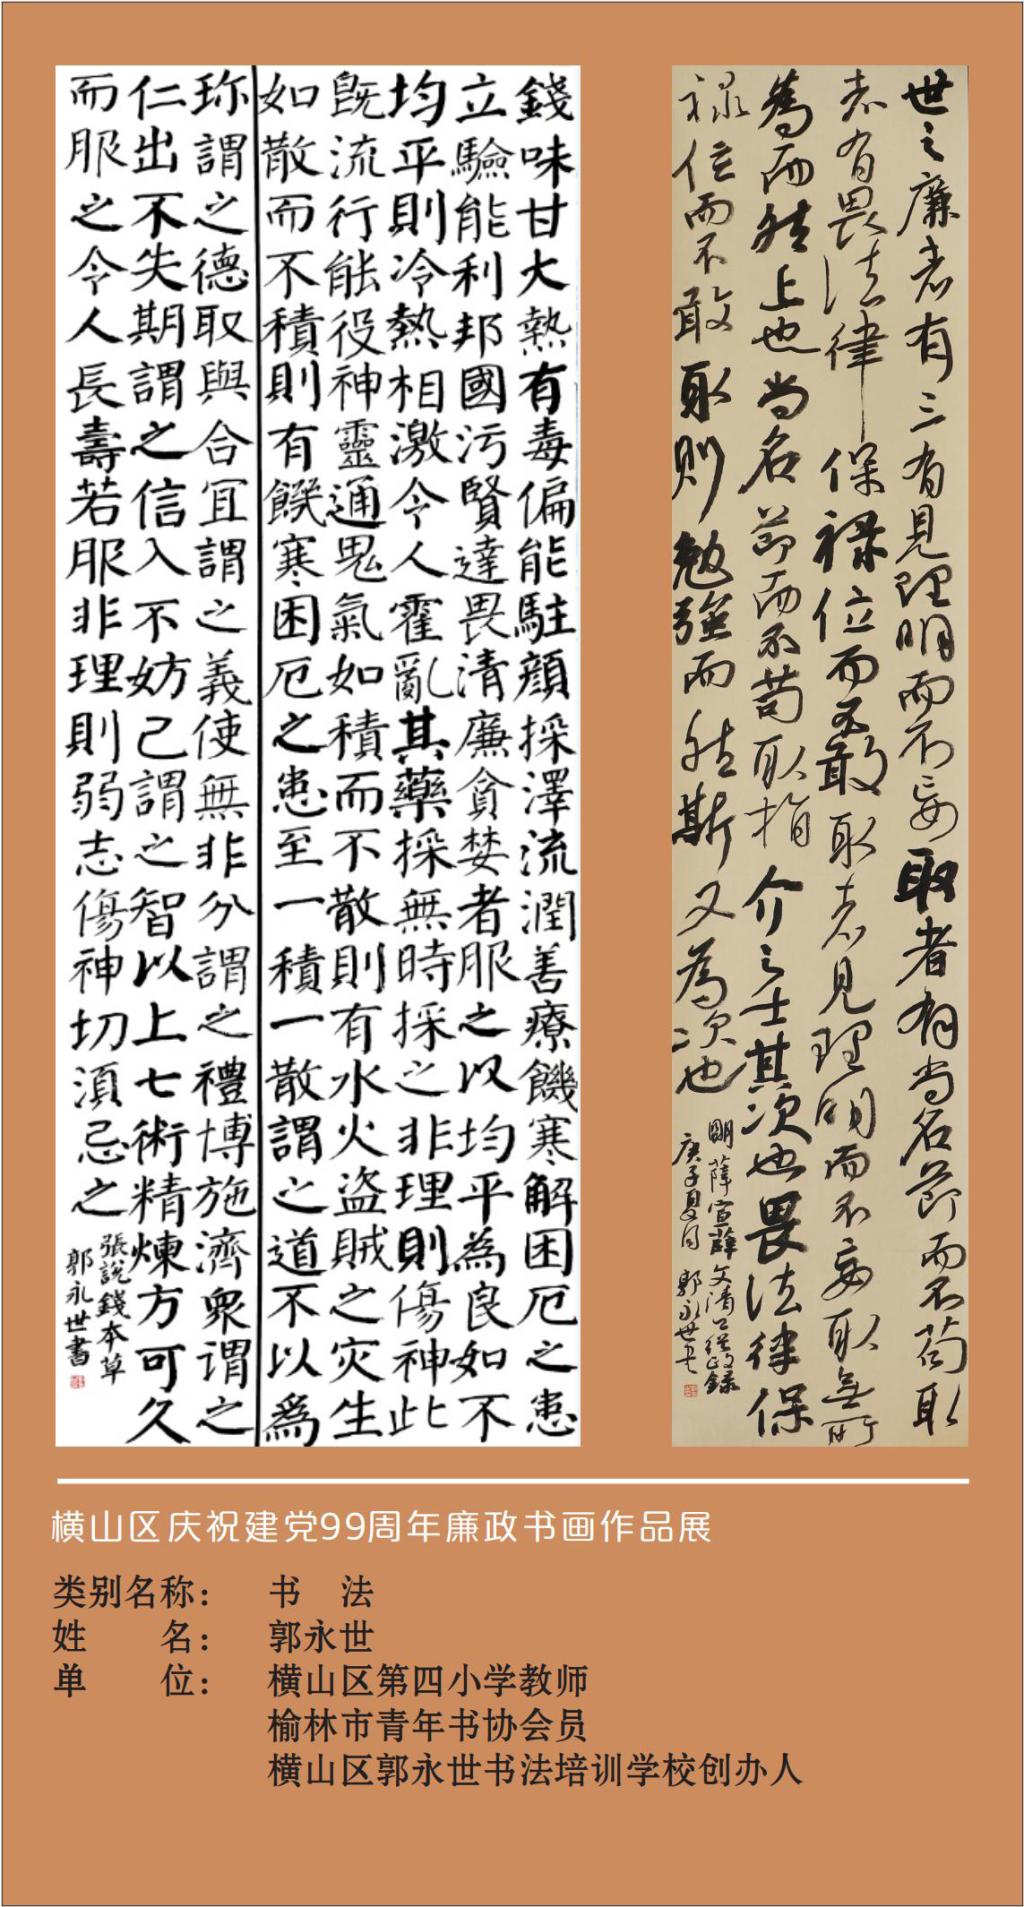 錢味甘大熱有毒偏能駐顏採澤流潤善療饑寒解困厄之患
立驗能利邦國污賢達畏清廉貪婪者服之以均平為良如不
均平則冷熱相激令人霍亂其藥採無時採之非理則傷神此
旣流行能役神靈通鬼氣如積而不散則有水火盜賊之灾生
如散而不積則有饌寒困厄之患至一積一散謂之道不以為
珎謂之德取與合宜謂之義使無非分謂之禮博施濟衆谓之
仁出不失期謂之信入不妨己謂之智以上七術精煉方可久
而服之令人長壽若服非理則弱志傷神切須忌之
張說錢本草
郭永世書
世之廉者有三有見理明而不妄取者有尚名節而不苟取
者有畏法律保禄位而不敢取者見理明而不妄取無所
為而然上也尚名節而不苟取狷介之士其次也畏法律保
禄位而不敢取則勉強而然斯又為次也
明薛宣薛文清公從政録
庚子夏月 郭永世書
横山区庆祝建党99周年廉政书画作品展
类别名称： 书 法
姓 名： 郭永世
单 位： 横山区第四小学教师
榆林市青年书协会员
横山区郭永世书法培训学校创办人